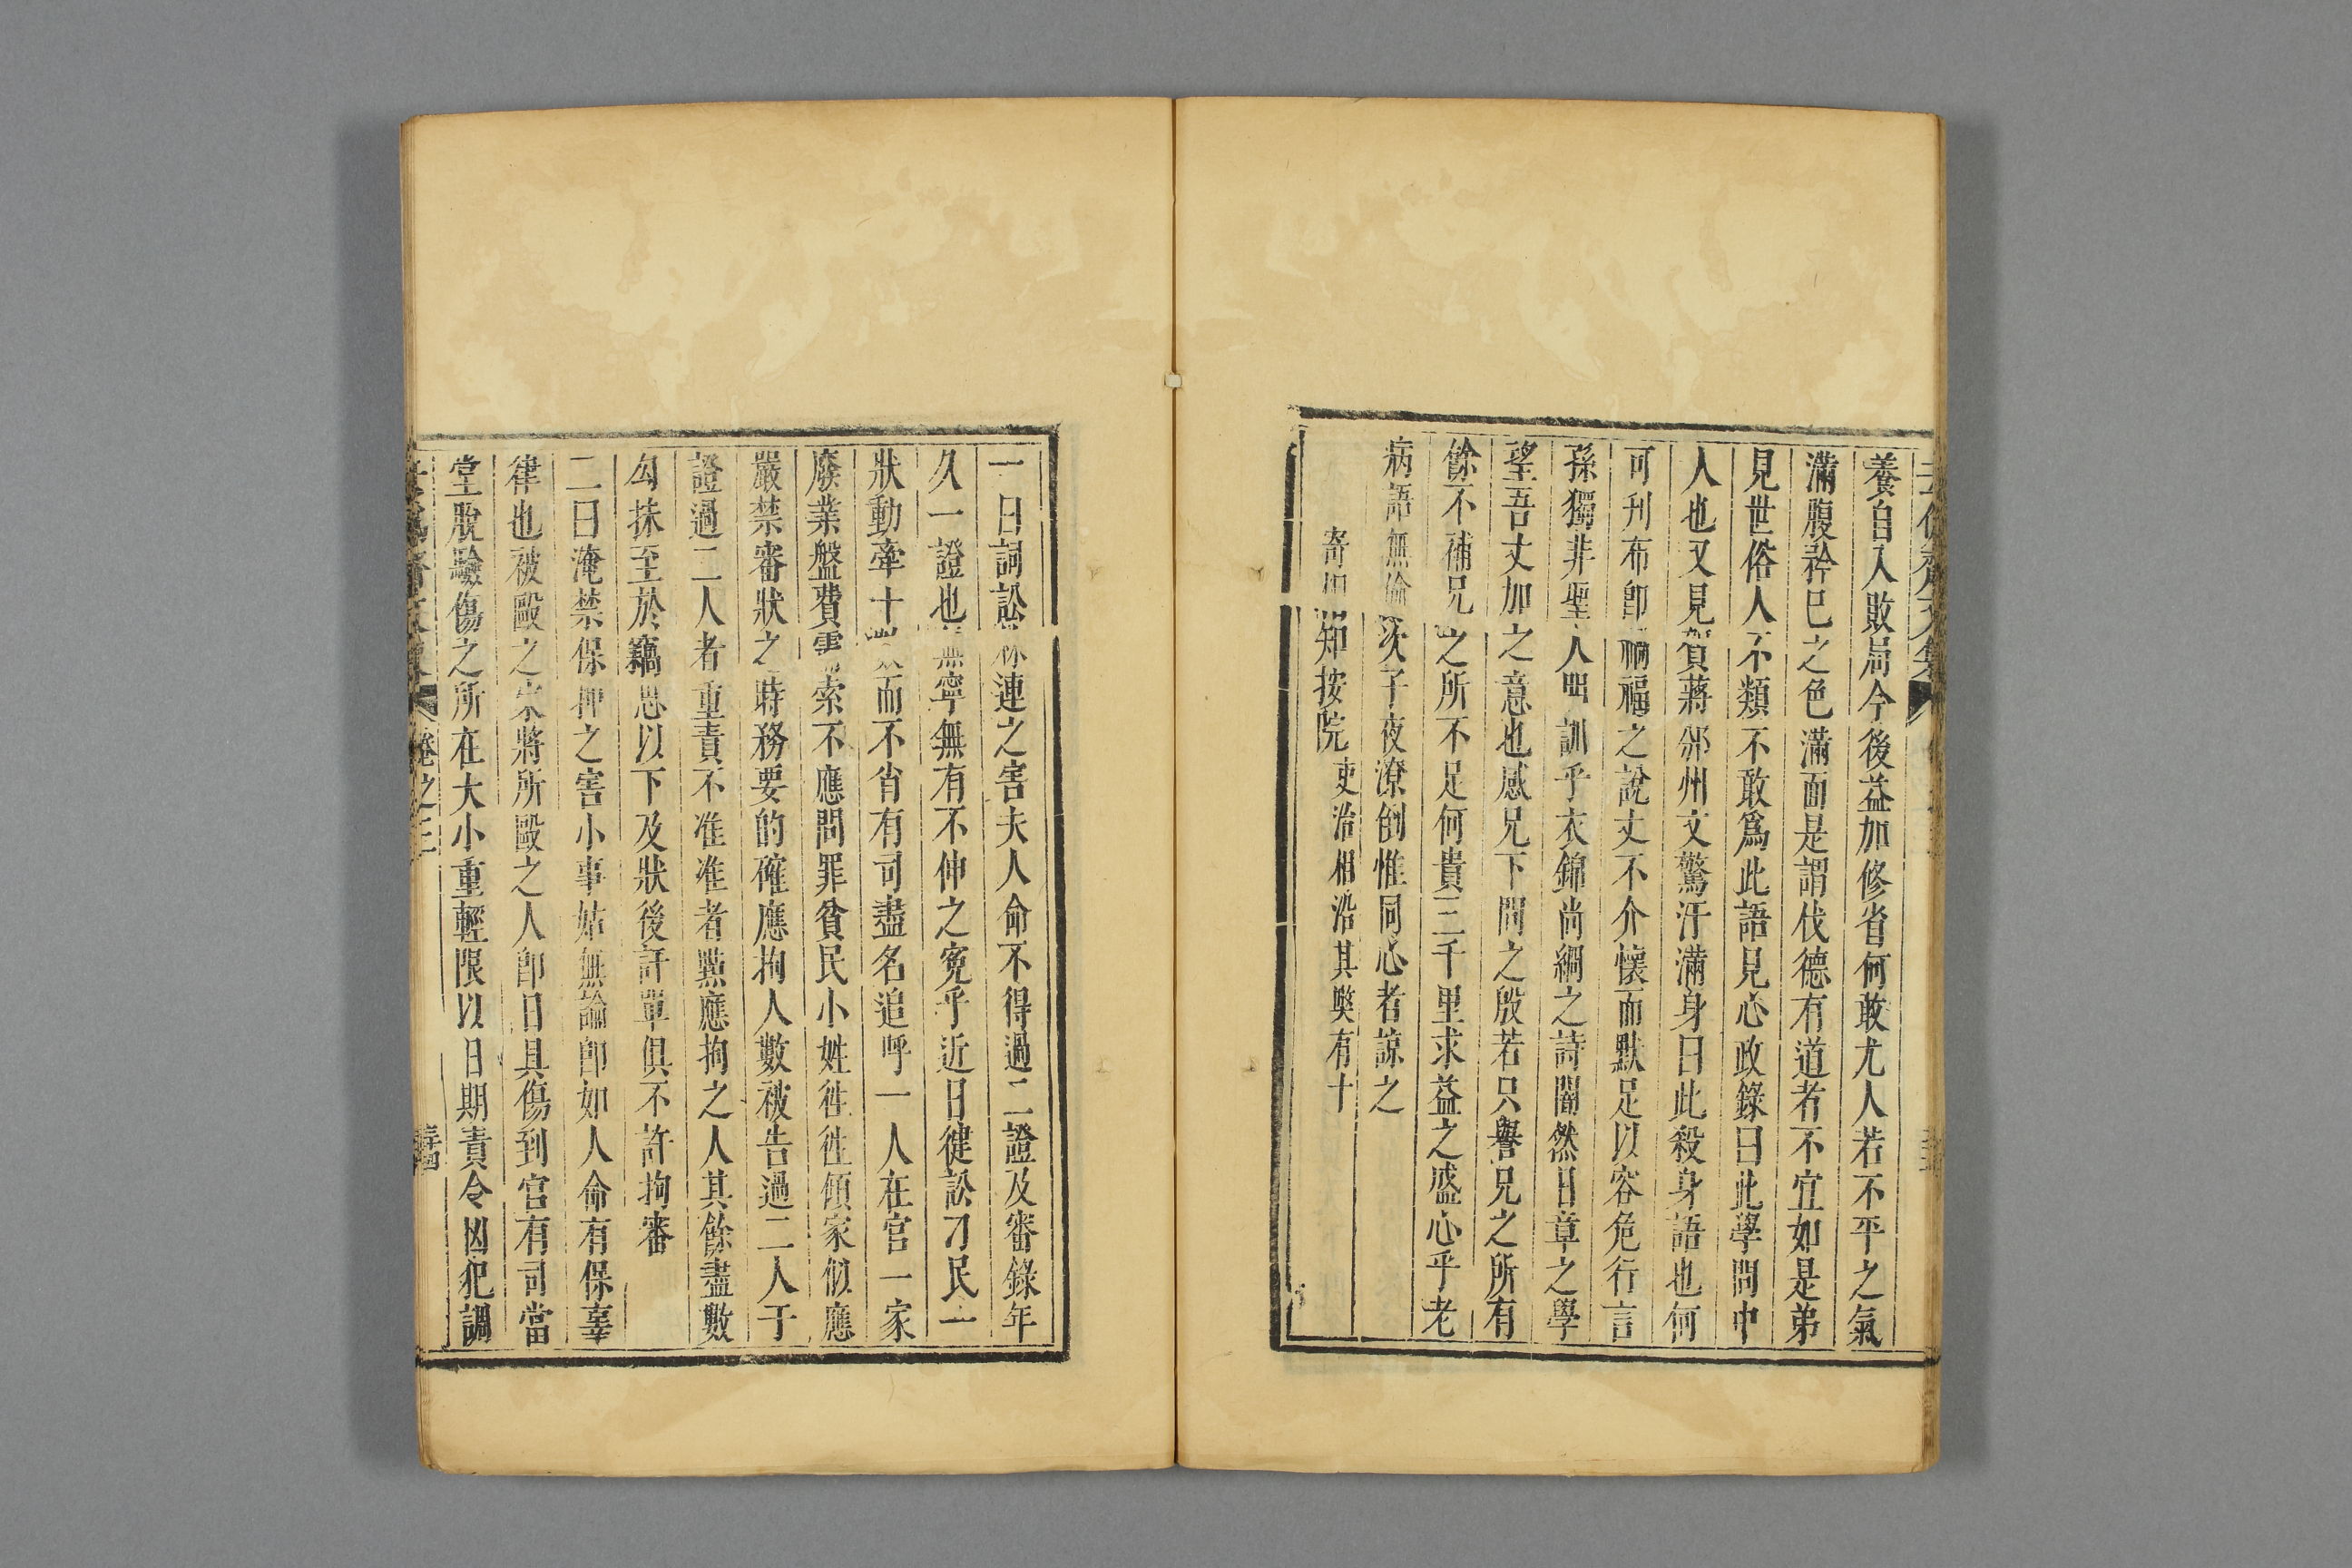 去偽齋文集
養自入敗局今後益加修省何敢尤人若不平之氣
滿腹矜巳之色滿面是謂伐德有道者不宜如是弟
見世俗人不類不敢爲此語見心政錄曰此學問中
人也又見賀蔣邠州文驚汗滿身曰此殺身語也何
可刋布卽禍福之說丈不介懷而默足以容危行言
孫獨非聖人明訓乎衣錦尚絅之詩闇然日章之學
望吾丈加之意也感兄下問之殷若只譽兄之所有
餘不補兄之所不足何貴三千里求益之盛心乎老
病語無倫次子夜潦倒惟同心者諒之
寄 鄭按院 吏治相沿其獘有十
一曰詞訟株連之害夫人命不得過二證及審錄年
久一證也無寧無有不伸之寃乎近日健訟刁民一
狀動牽十 人而不省有司盡名追呼一人在官一家
廢業盤費需索不應問罪貧民小姓徃徃傾家似應
嚴禁審狀之時務要的確應拘人數被告過二人于
證過二人者重責不准准者㸃應拘之人其餘盡數
勾抹至於竊盜以下及狀後訐單俱不許拘審
二曰淹禁保押之害小事姑無論卽如人命有保辜
律也被毆之家將所毆之人卽日具傷到官有司當
堂脫驗傷之所在大小重輕限以日期責令凶犯調
去偽齋文集 卷之三 三十四